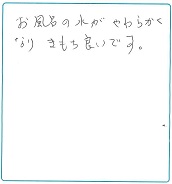 お風呂の水がやわらかく
なり きもち良いです。